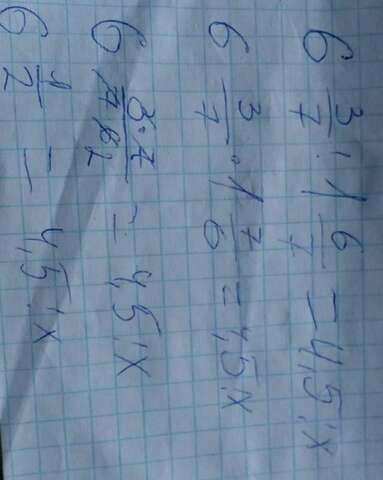 6 3/7 : 1 6/7 = 4,5 : x
6 3/7 · 1 7/6 = 4,5 : x
6 3·7/7·6 2 = 4,5 : x
6 1/2 = 4,5 : x